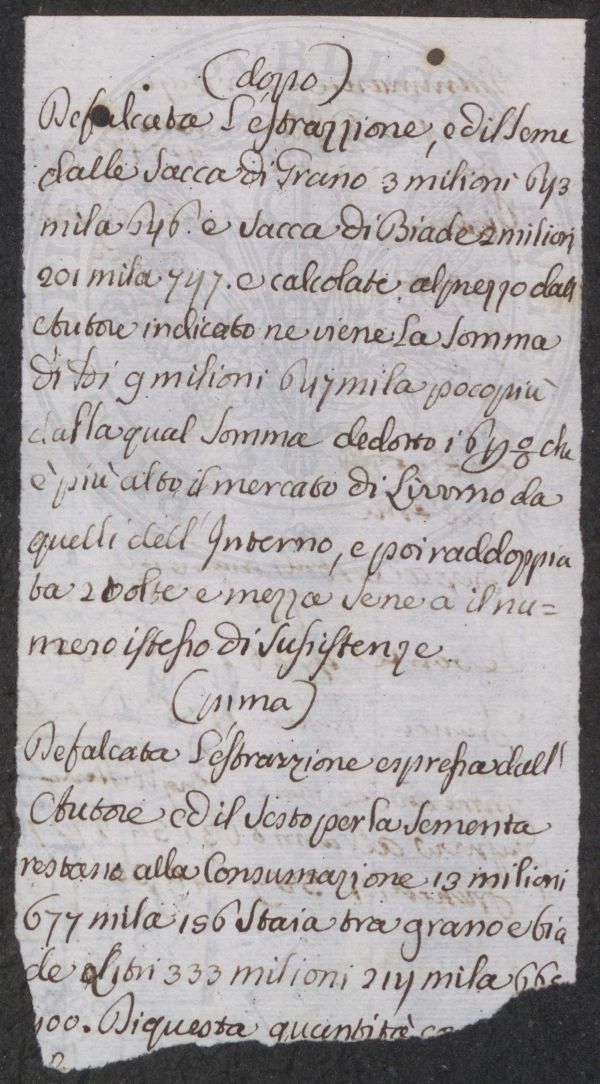 (dopo)
Defalcata L'estrazzione, ed il Seme
dalle Sacca di Grano 3 milioni 643
mila 646. e Sacca di Biade 2 milioni
201 mila 747. e calcolate al prezzo dall
Autore indicato ne viene La Somma
di 9 milioni 647 mila poco più
dalla qual Somma dedotto i che
è più alto il mercato di Livorno da
quelli dell' Interno, e poi raddoppia
ta 2 volte e mezza Se ne a il nu=
mero istesso di Susistenze
(prima)
Defalcata L'estrazzione espressa dall'
Autore ed il Sesto per la Sementa
restano alla Consumazione 13 milioni
677 mila 156 Staia tra grano e bia
de Litri 333 milioni 214 mila
400. Di questa quantità